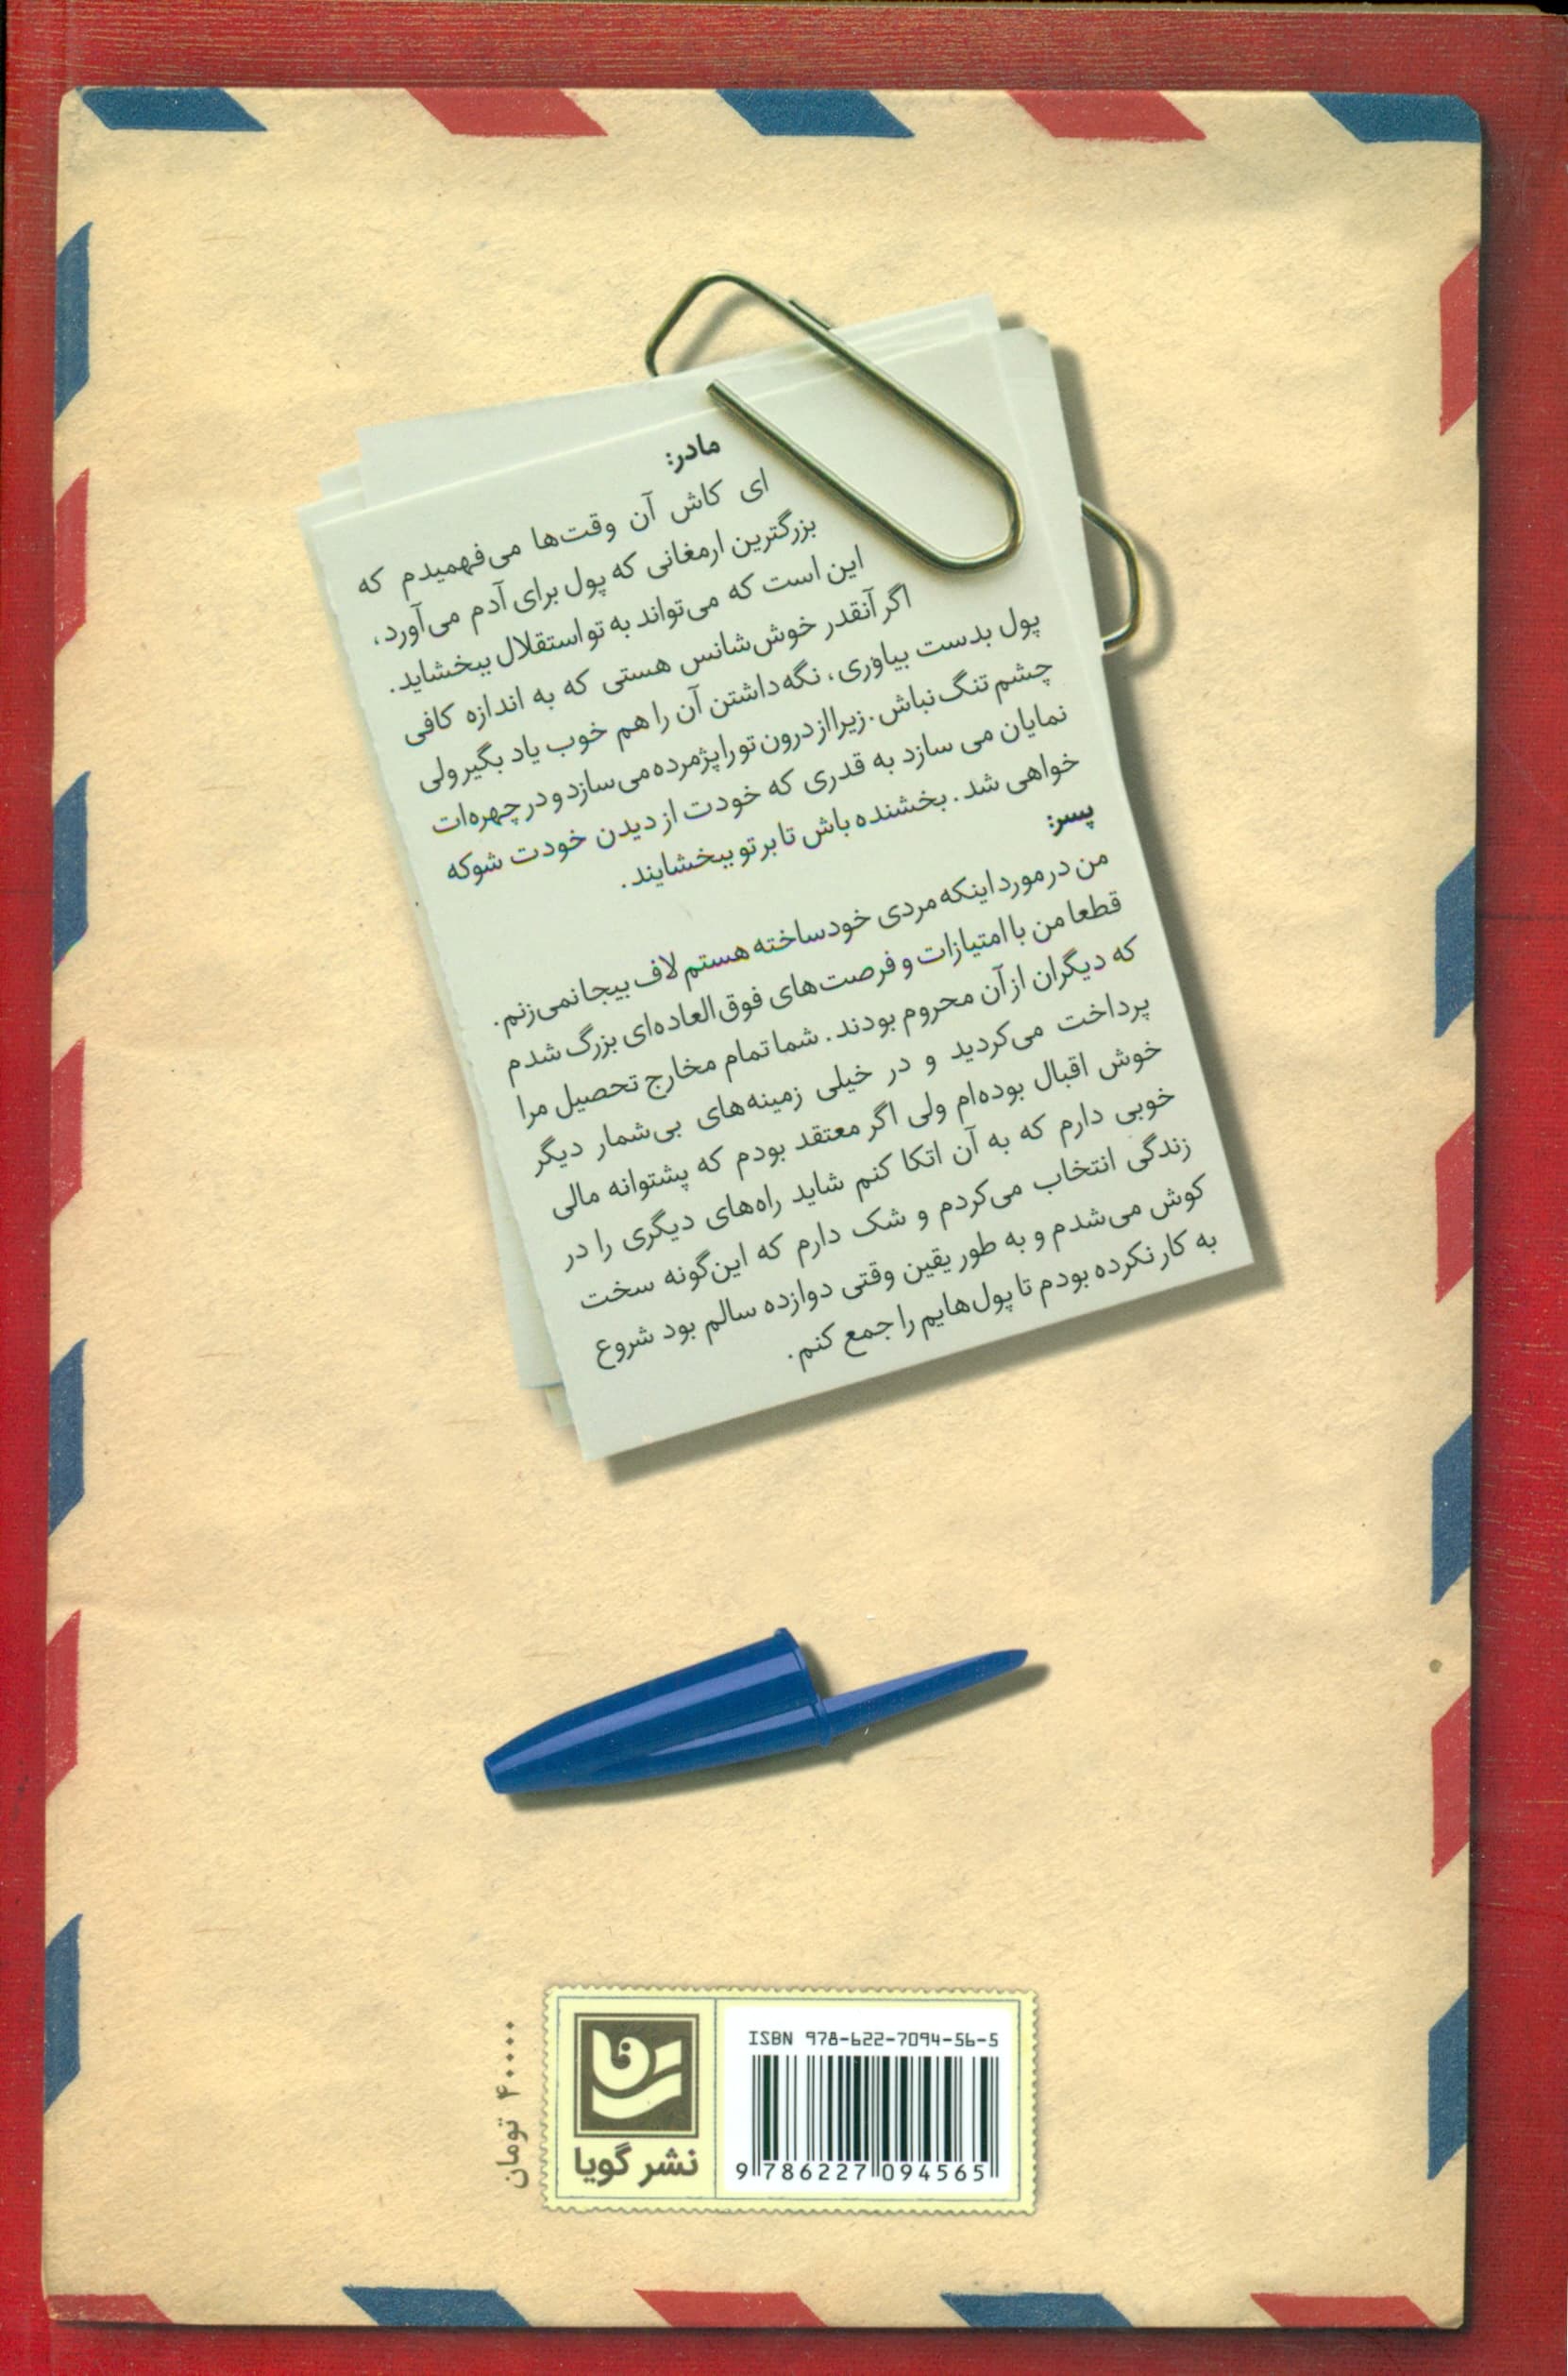 مادر:
ای کاش آن وقت‌ها می‌فهمیدم که
بزرگترین ارمغانی که پول برای آدم می‌آورد،
این است که می‌تواند به تو استقلال ببخشاید.
اگر آنقدر خوش‌شانس هستی که به اندازه کافی
پول بدست بیاوری، نگه‌داشتن آن را هم خوب یاد بگیر ولی
چشم تنگ نباش. زیرا از درون تو را پژمرده می‌سازد و در چهره‌ات
نمایان می سازد به قدری که خودت از دیدن خودت شوکه
خواهی شد. بخشنده باش تا بر تو ببخشایند.
پسر:
من در مورد اینکه مردی خودساخته هستم لاف بیجا نمی‌زنم.
قطعا من با امتیازات و فرصت‌های فوق‌العاده‌ای بزرگ شدم
که دیگران از آن محروم بودند. شما تمام مخارج تحصیل مرا
پرداخت می‌کردید و در خیلی زمینه‌های بی‌شمار دیگر
خوش اقبال بوده‌ام ولی اگر معتقد بودم که پشتوانه مالی
خوبی دارم که به آن اتکا کنم شاید راه‌های دیگری را در
زندگی انتخاب می‌کردم و شک دارم که این‌گونه سخت
کوش می‌شدم و به طور یقین وقتی دوازده سالم بود شروع
به کار نکرده بودم تا پول‌هایم را جمع کنم.
ISBN 978-622-7094-56-5
9 786227 094565
نشر گویا
۴۰۰۰۰ تومان